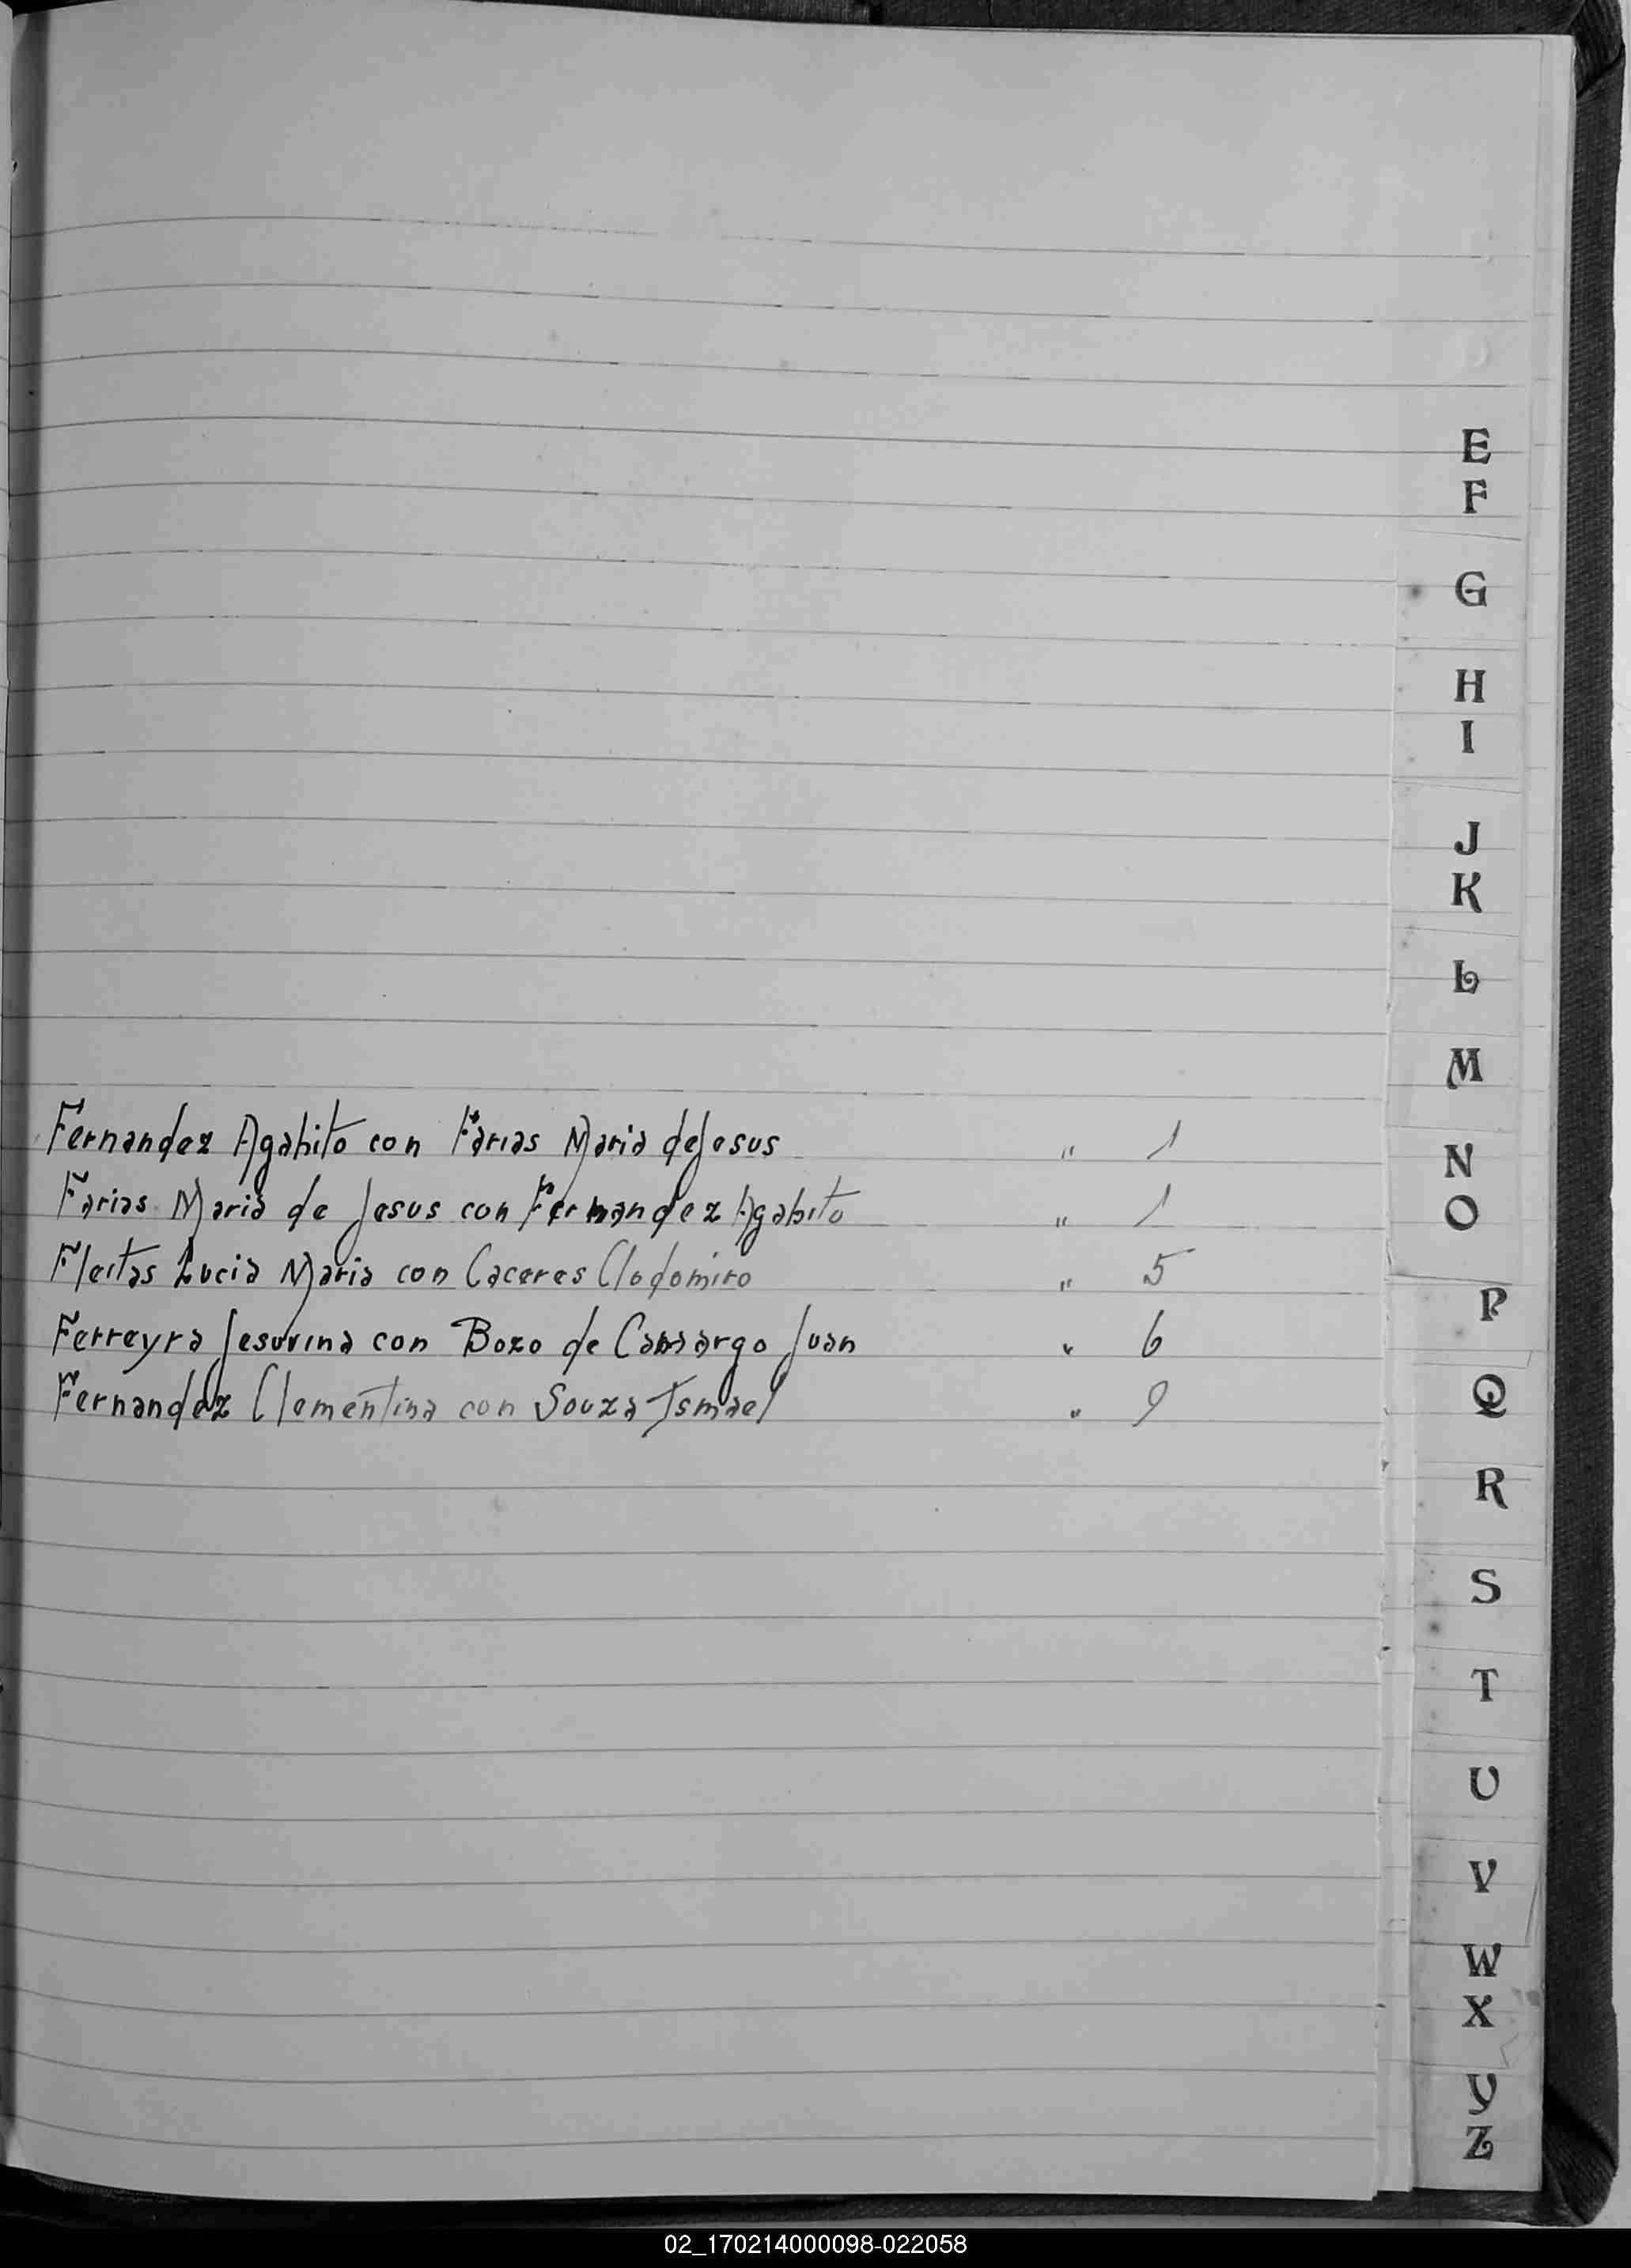 E
F
G
H
I
J
K
L
M
Fernandez Agabito con Farias Maria de Jesus " 1
N
Farias Maria de Jesus con Fernandez Agabito " 1
O
Fleitas Lucia Maria con Caceres Clodomiro " 5
P
Ferreyra Jesuvina con Bozo de Camargo Juan " 6
Fernandez Clementina con Souza Ismael " 9
Q
R
S
T
U
V
W
X
Y
Z
02_170214000098-022058